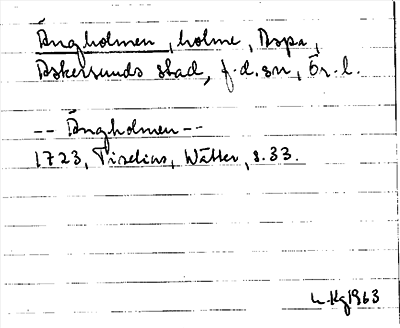 Ängholmen, holme, Aspa,
Askersunds stad, f.d. sn, Ör. l.
-- Ängholmen --
1723, Tiselius, Wätter, s. 33.
Kg 1963